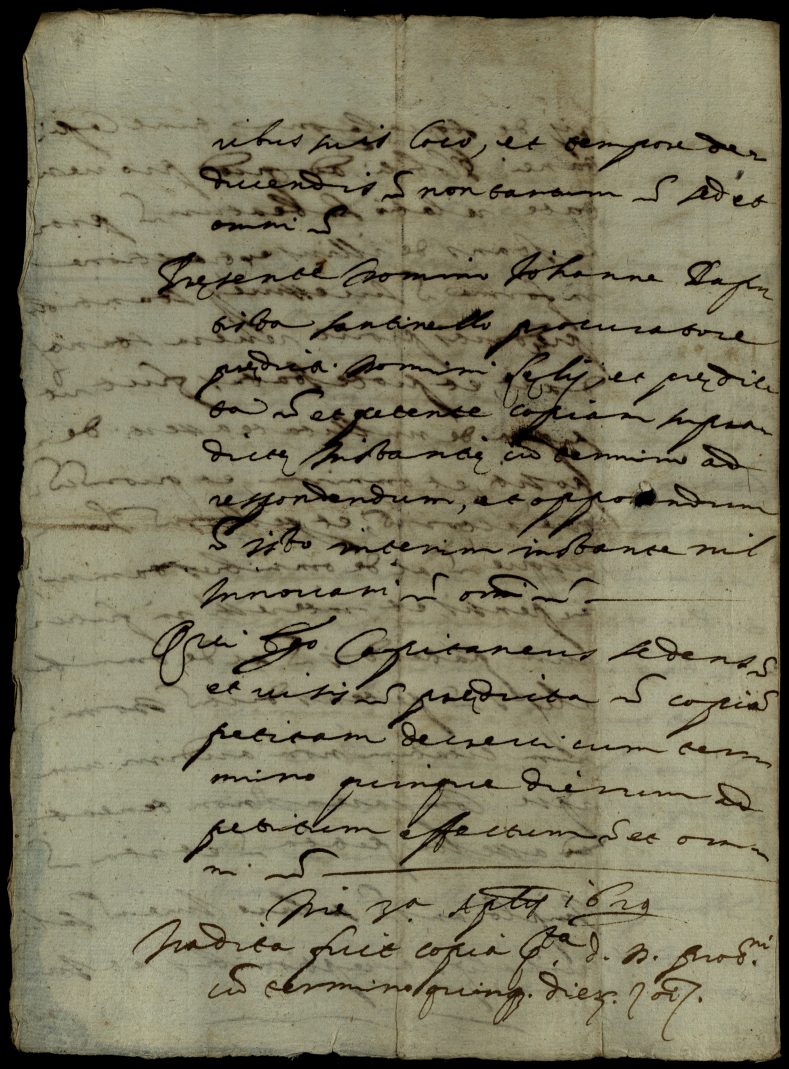 ribus suis loco, et tempore de
ducendis non tantum sed et
omni
Presente Domino Johanne Bap
tista santinello procuratore
predict. Domini et predic
ta et petente copiam supra
dictę instantię cū termino ad
respondendum, et opponendum
isto interim instante nil
innovari omī
Qui Capitaneus sedens
et visis prędicta copiā
petitam decrevit cum ter
mino quinque dierum ad
petitum effectum et om
ni
Die 3ª 1629
Tradita fuit copia d. D.
cū termino quinq. dier.